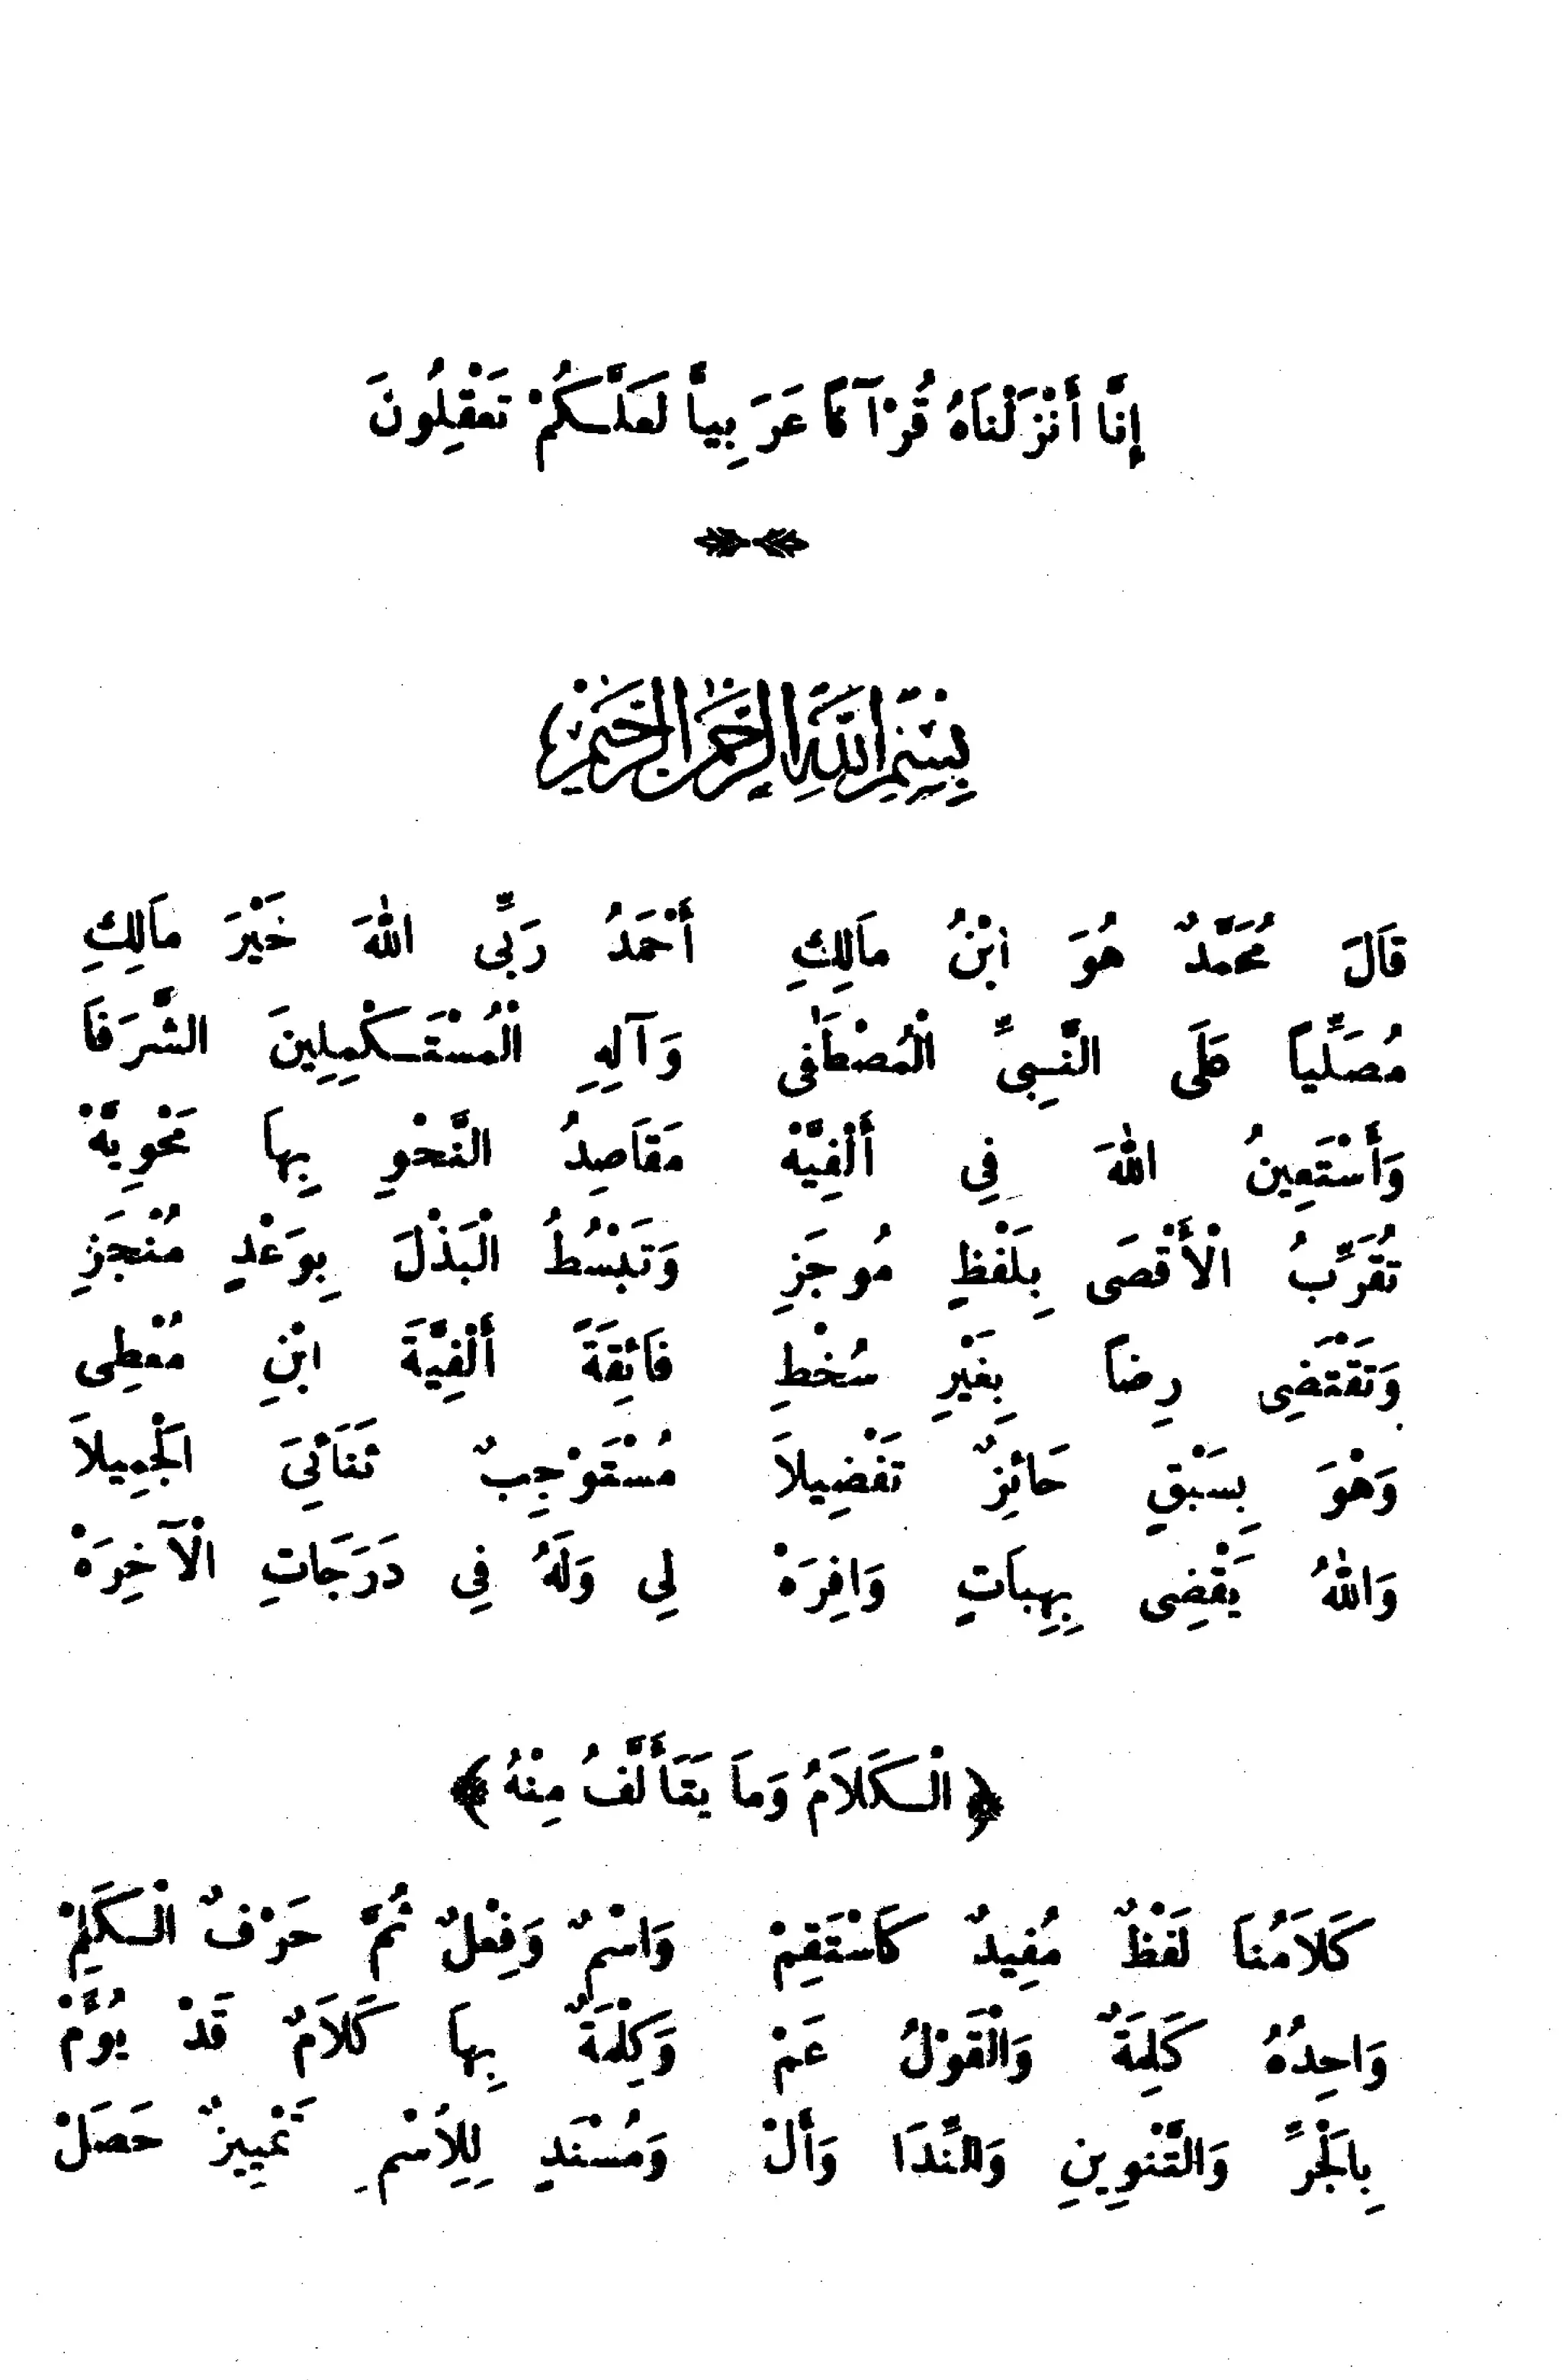 إِنَّا أَنْزَلْنَاهُ قُرْآنًا عَرَبِيًّا لَعَلَّكُمْ تَعْقِلُونَ
بِسْمِ اللَّهِ الرَّحْمَنِ الرَّحِيمِ
قَالَ مُحَمَّدٌ هُوَ ابْنُ مَالِكِ أَحْمَدُ رَبِّى اللهَ خَيْرَ مَالِكِ
مُصَلِّياً عَلَى النَّبِىِّ الْمُصْطَفٰى وَآلِهِ الْمُسْتَكْمِلِينَ الشَّرَفَا
وَأَسْتَعِينُ اللهَ فِى أَلْفِيَّهْ مَقَاصِدُ النَّحْوِ بِهَا مَحْوِيَّهْ
تُقَرِّبُ الْأَقْصَى بِلَفْظٍ مُوجَزِ وَتَبْسُطُ الْبَذْلَ بِوَعْدٍ مُنْجَزِ
وَتَقْتَضِى رِضاً بِغَيْرِ سُخْطِ فَائِقَةً أَلْفِيَّةَ ابْنِ مُعْطِى
وَهْوَ بِسَبْقٍ حَائِزٌ تَفْضِيلاَ مُسْتَوْجِبٌ ثَنَائِىَ الْجَمِيلاَ
وَاللهُ يَقْضِى بِهِبَاتٍ وَافِرَهْ لِى وَلَهُ فِى دَرَجَاتِ الْآخِرَهْ
﴿الْكَلاَمُ وَمَا يَتَأَلَّفُ مِنْهُ﴾
كَلاَمُنَا لَفْظٌ مُفِيدٌ كَاسْتَقِمْ وَاسْمٌ وَفِعْلٌ ثُمَّ حَرْفٌ الْكَلِمْ
وَاحِدُهُ كَلِمَةٌ وَالْقَوْلُ عَمْ وَكِلْمَةٌ بِهَا كَلاَمٌ قَدْ يُؤَمّْ
بِالْجَرِّ وَالتَّنْوِينِ وَالنِّدَا وَأَلْ وَمُسْنَدٍ لِلاِسْمِ تَمْيِيزٌ حَصَلْ